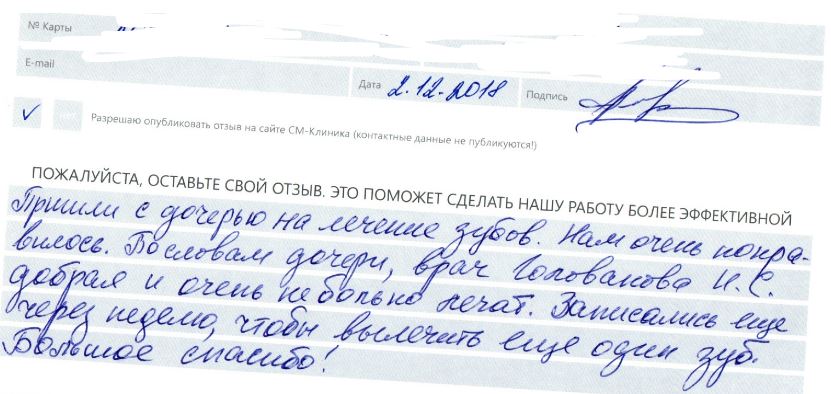 № Карты
E-mail
Дата 2.12.2018 Подпись
нет Разрешаю опубликовать отзыв на сайте СМ-Клиника (контактные данные не публикуются!)
ПОЖАЛУЙСТА, ОСТАВЬТЕ СВОЙ ОТЗЫВ. ЭТО ПОМОЖЕТ СДЕЛАТЬ НАШУ РАБОТУ БОЛЕЕ ЭФФЕКТИВНОЙ
Пришли с дочерью на лечение зубов. Нам очень понра-
вилось. По словам дочери, врач Голованова И.С.
добрая и очень не больно лечат. Записались еще
через неделю, чтобы вылечить еще один зуб.
Большое спасибо!